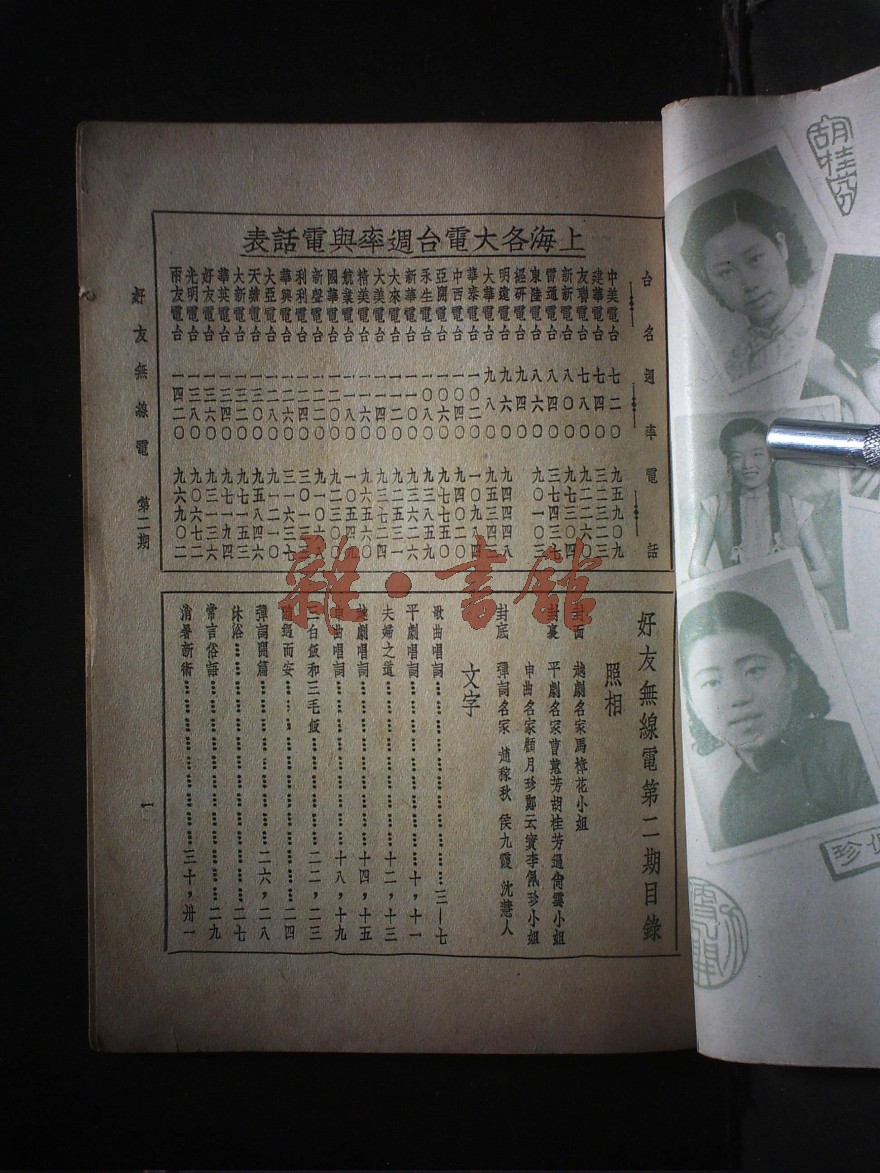 上海各大電台週率與電話表
台名 週率 電話
中美電台 七二〇 九五九〇九
建華電台 七四〇 三三三二三
友聯電台 七八〇 九二二六〇
新新電台 八〇〇 九七三〇四
電通電台 八四〇 三七四三七
東陸電台 八六〇 九〇一〇三
經研電台 九四〇
明遠電台 九六〇 九四四四八
大華電台 九八〇 九五三三四
華泰電台 一〇二〇 一〇九八四
中西電台 一〇四〇 九四〇二〇
電台 一〇六〇 九七七五〇
禾生電台 一〇八〇 九三八五九
新華電台 一一〇〇 九三六二六
大來電台 一一二〇 九二五三一
大美電台 一一四〇 九三七二四
精美電台 一一六〇 九六五五〇
航業電台 一一八〇 一〇五四九
國華電台 一二〇〇 九二三〇〇
新聲電台 一二二〇 九一〇六八
利利電台 一二四〇 三〇一三三
華興電台 一二六〇 三一六三七
大亞電台 一二八〇 九一二一〇
天籟電台 一三〇〇 九五八四六
大新電台
華英電台 一三四〇 九七一九四
好友電台 一三六〇 九三一三六
光明電台 一三八〇 九〇六七二
兩友電台 一四二〇 九六九〇二
好友無線電第二期目錄
照相
封面 越劇名家馬樟花小姐
封裏 平劇名家曹慧芳胡桂芳過倚雲小姐
申曲名家顧月珍鄭云寶李佩珍小姐
封底 彈詞名家 趙稼秋 侯九霞 沈慧人
文字
歌曲唱詞……三—七
平劇唱詞……十,十一
夫婦之道……十二,十三
越劇唱詞……十四,十五
申曲唱詞……十八,十九
三白飯和三毛飯……二二,二三
隨遇而安……二四
彈詞開篇……二六,二八
沐浴……二七
常言俗語……二九
消暑新術……三十,卅一
好友無線電 第二期
一
雜·書館
胡桂芬